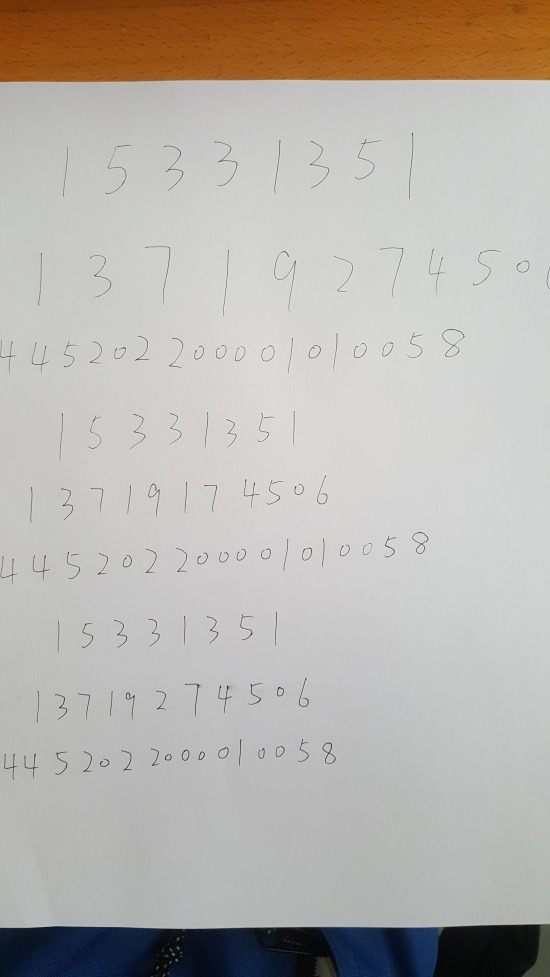 15331351
13719274506
445202200001010058
15331351
13719174506
445202200001010058
15331351
13719274506
4452022000010058